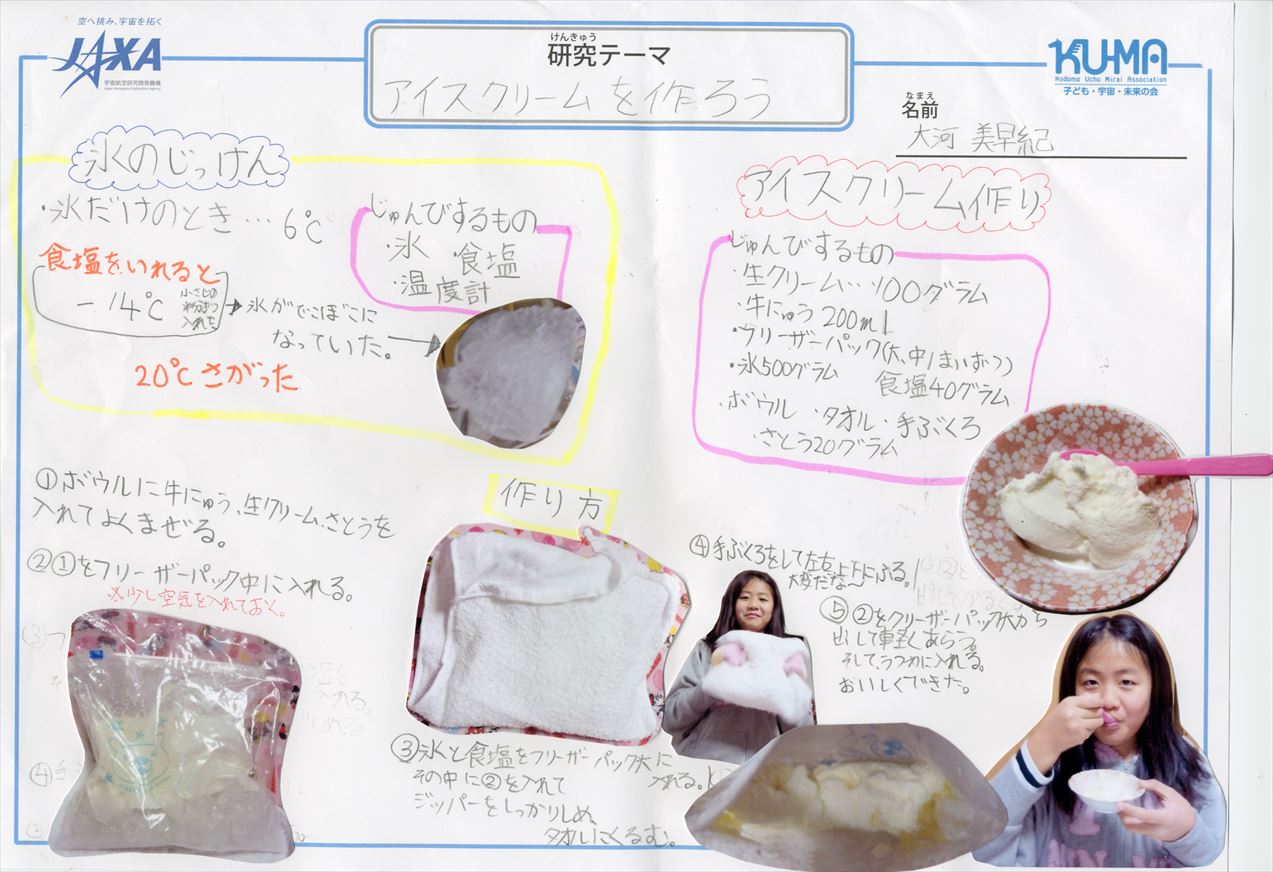 空へ挑み、宇宙を拓く
JAXA
宇宙航空研究開発機構
Japan Aerospace Exploration Agency
けんきゅう
研究テーマ
アイスクリームを作ろう
KU-MA
Kodomo Uchu Mirai Association
子ども・宇宙・未来の会
なまえ
名前
大河 美早紀
氷のじっけん
・氷だけのとき… 6℃
食塩をいれると
-14℃
小さじの
入れた
→氷がでこぼこに
なっていた。
20℃さがった
じゅんびするもの
・氷 ・食塩
・温度計
アイスクリーム作り
じゅんびするもの
・生クリーム…100グラム
・牛にゅう 200ml
・フリーザーパック(大、中1まいずつ)
・氷500グラム 食塩40グラム
・ボウル ・タオル・手ぶくろ
・さとう20グラム
作り方
①ボウルに牛にゅう、生クリーム、さとうを
入れてよくまぜる。
②①をフリーザーパック中に入れる。
※少し空気を入れておく。
③氷と食塩をフリーザーパック大に
入れる。
その中に②を入れて
ジッパーをしっかりしめ、
タオルにくるむ。
④手ぶくろをして左右上下にふる。
大変だなー
⑤②をフリーザーパック大から
出して軽くあらう。
そして、うつわに入れる。
おいしくできた。